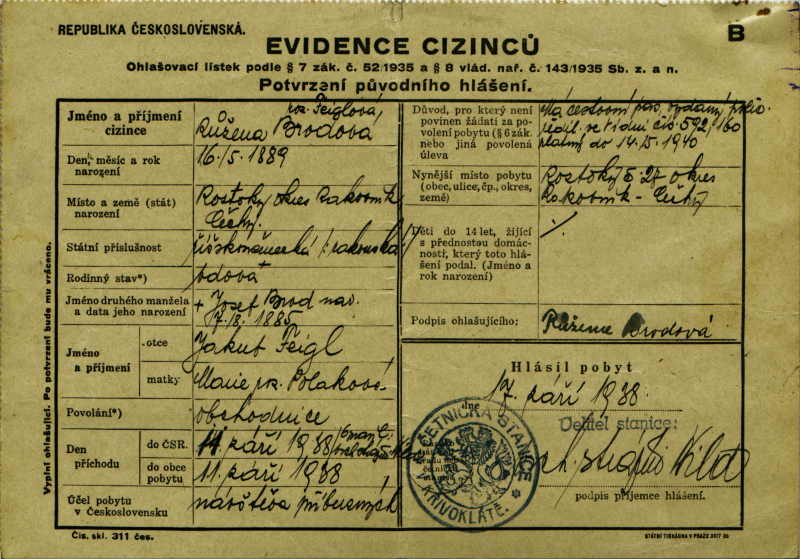 REPUBLIKA ČESKOSLOVENSKÁ.
B
EVIDENCE CIZINCŮ
Ohlašovací lístek podle § 7 zák. č. 52/1935 a § 8 vlád. nař. č. 143/1935 Sb. z. a n.
Potvrzení původního hlášení.
Jméno a příjmení
cizince
roz. Feiglová,
Růžena Brodová
Den, měsíc a rok
narození
16./5. 1889
Místo a země (stát)
narození
Roztoky okres Rakovník
Čechy.
Státní příslušnost
říškoněmecká /:rakouská:/
Rodinný stav*)
vdova
Jméno druhého manžela
a data jeho narození
+ Josef Brod nar.
17./8. 1885
Jméno
a příjmení
otce
Jakub Feigl
matky
Marie roz. Polaková
Povolání*)
obchodnice
Den
příchodu
do ČSR.
11. září 1938
do obce
pobytu
11. září 1938
Účel pobytu
v Československu
návštěva příbuzných
Důvod, pro který není
povinen žádati za
povolení pobytu (§ 6 zák.
nebo jiná povolená
úleva
Má cestovní pas, vydaný polic.
ředit. ve Vídni čís. 592/160
platný do 14./5. 1940
Nynější místo pobytu
(obec, ulice, čp., okres,
země)
Roztoky č. 27 okres
Rakovník - Čechy
Děti do 14 let, žijící
s přednostou domác-
nosti, který toto hlá-
šení podal. (Jméno a
rok narození)
%
Podpis ohlašujícího:
Růžena Brodová
Hlásil pobyt
dne
17. září 1938
Velitel stanice:
ČETNICKÁ STANICE
V KŘIVOKLÁTĚ.
podpis příjemce hlášení.
Vyplní ohlašující. Po potvrzení bude mu vráceno.
Čis. skl. 311 čes.
STÁTNÍ TISKÁRNA V PRAZE